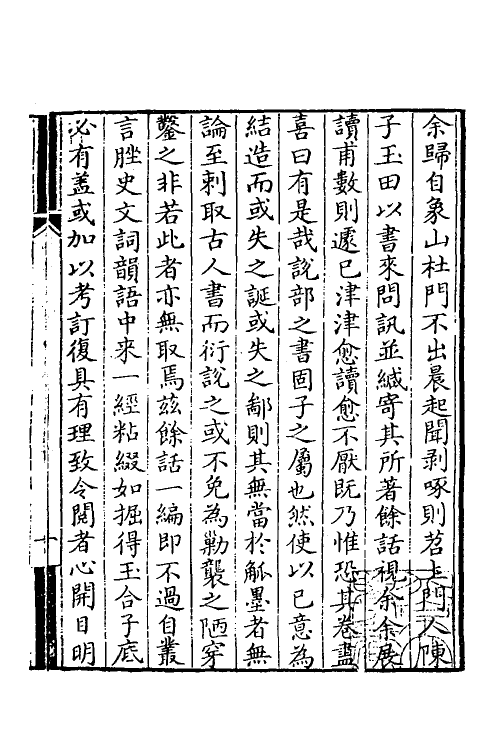 余歸自象山杜門不出晨起聞剥啄則茗上門人陳
子玉田以書來問訊並緘寄其所著餘話視余余展
讀甫數則遽已津津愈讀愈不厭既乃惟恐其卷盡
喜曰有是哉說部之書固子之屬也然使以已意為
結造而或失之誕或失之鄙則其無當於觚墨者無
論至刺取古人書而衍說之或不免為勦襲之陋穿
鑿之非若此者亦無取焉茲餘話一編即不過自叢
言脞史文詞韻語中來一經粘綴如掘得玉合子底
必有盖或加以考訂復具有理致令閱者心開目明